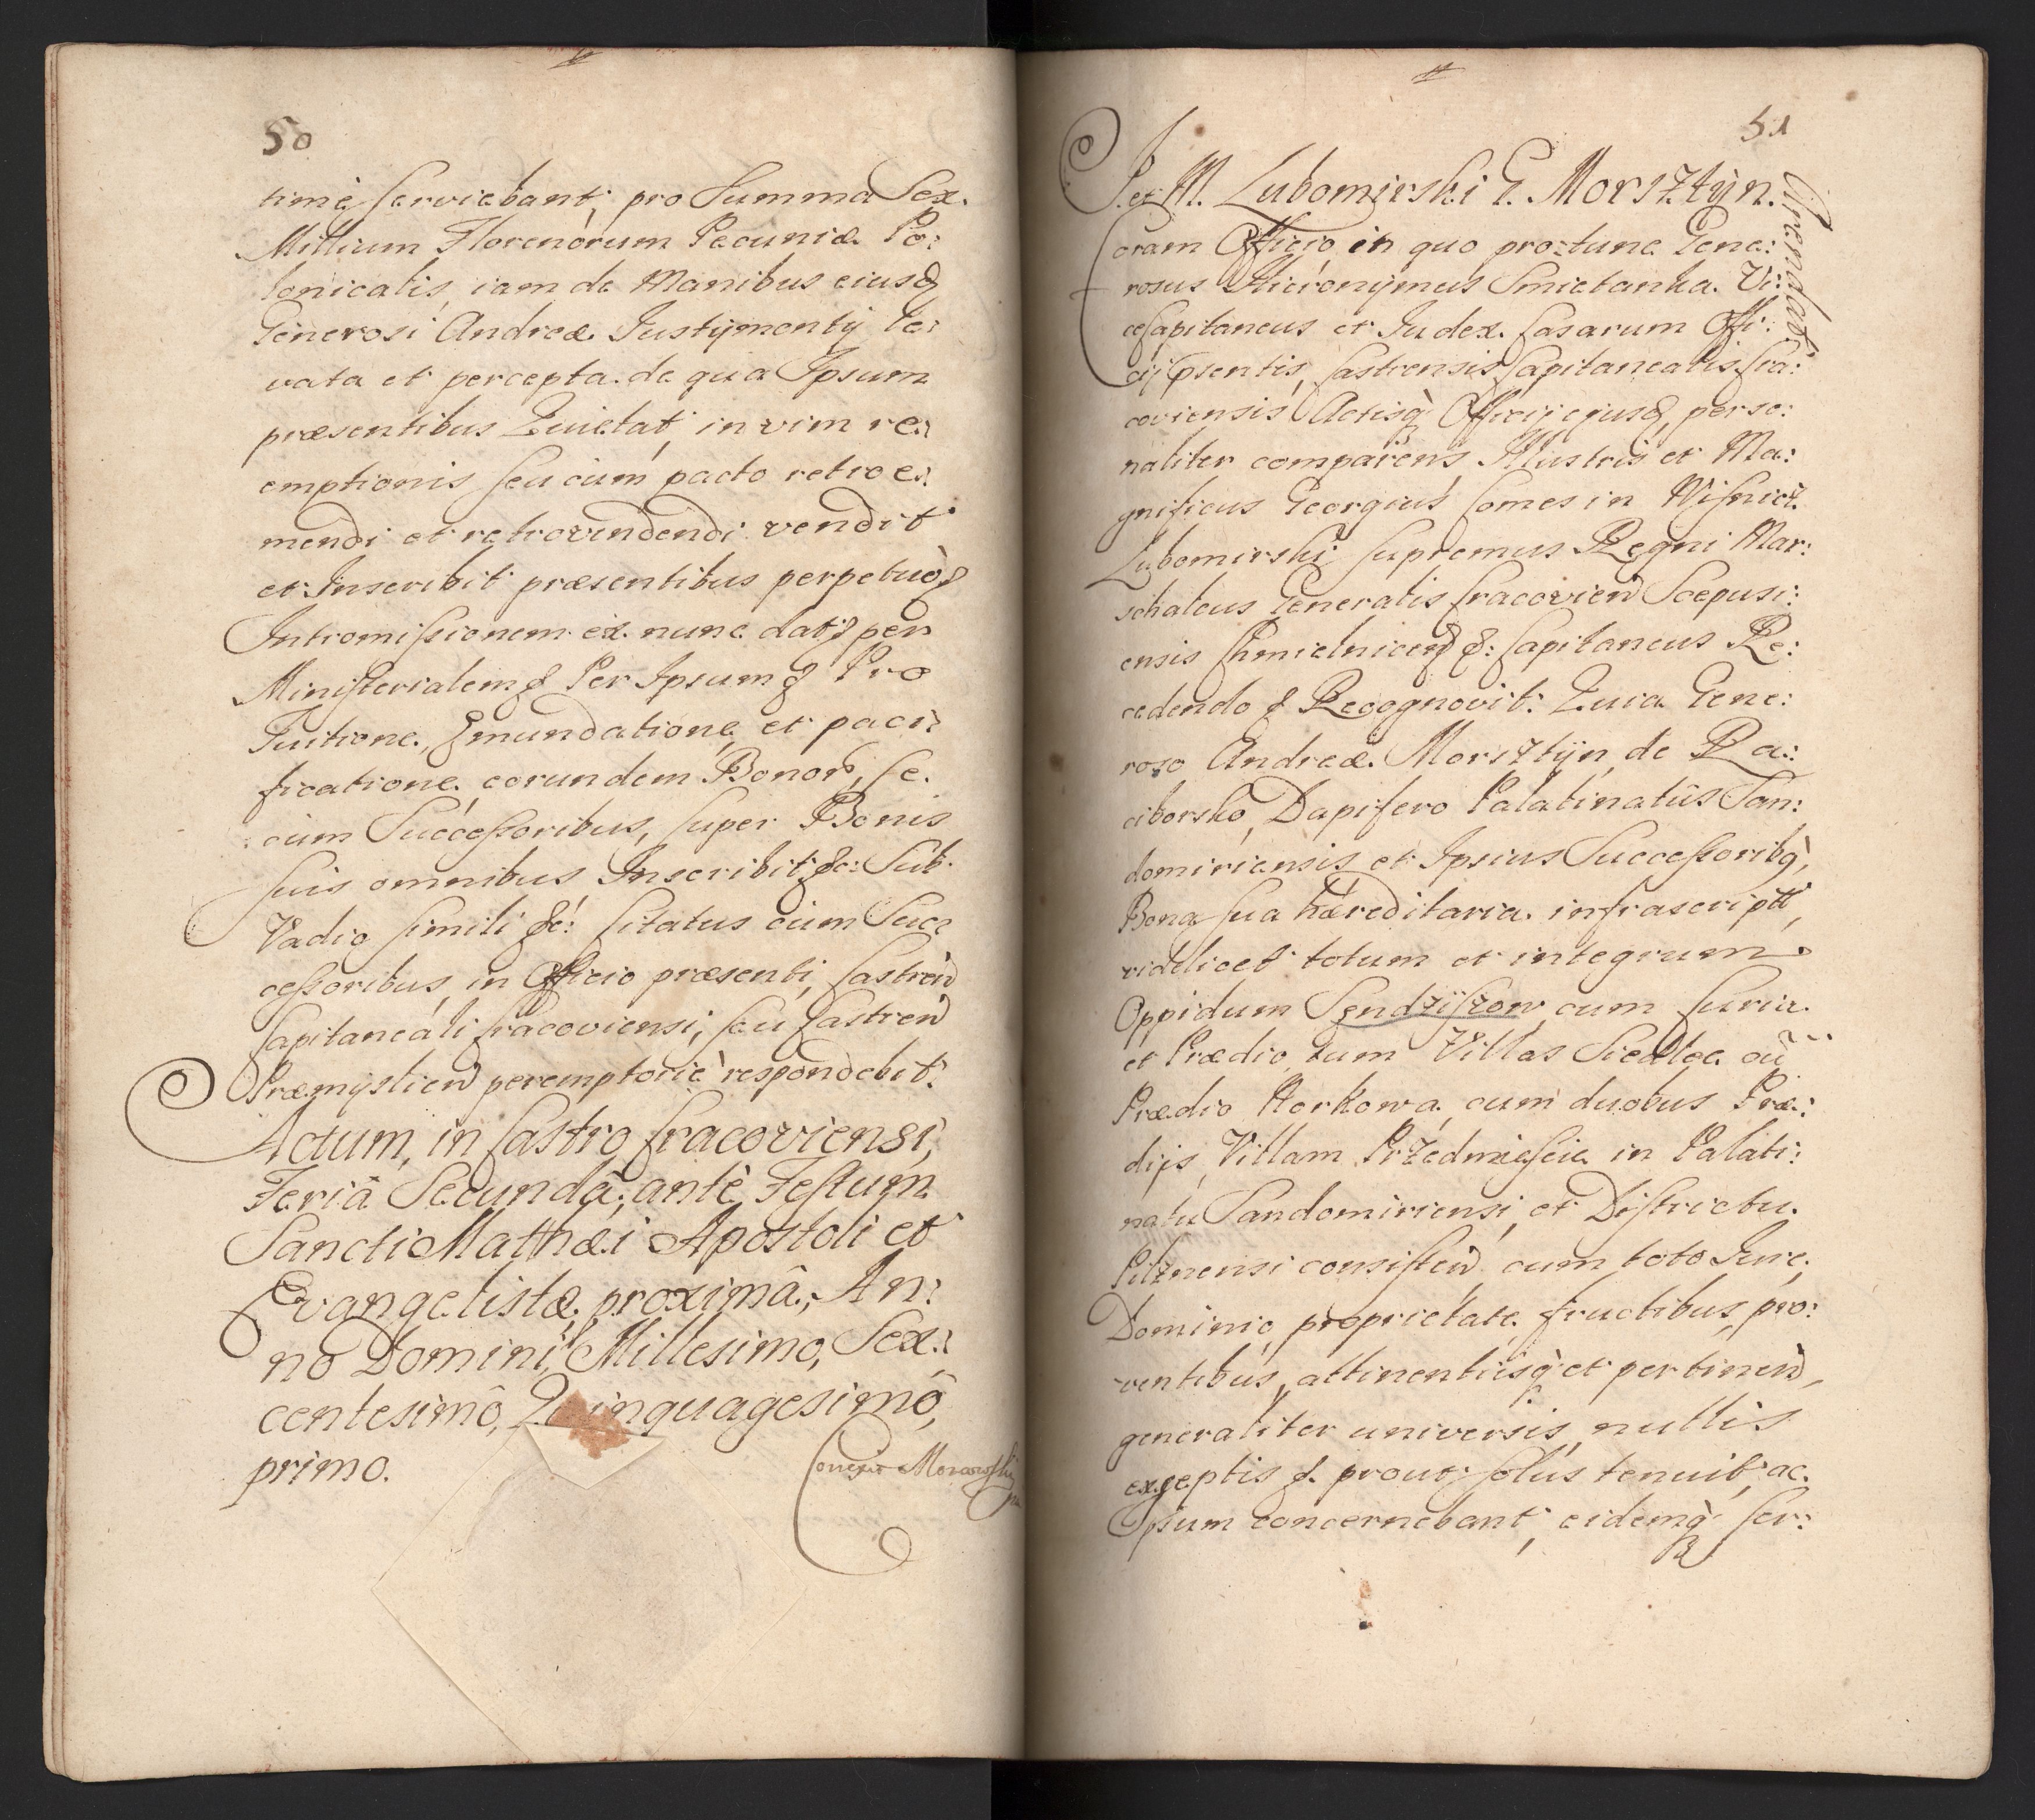 50
time serviebant, pro Summa Sex.
Millium Florenorum Pecuniæ Po:
lonicalis, iam de Manibus eiusd
Generosi Andreæ Justÿmontÿ le:
vata et percepta. de qua Ipsum
præsentibus Quietat, in vim re:
emptionis seu cum pacto retroe:
mendi et retrovindendi vendit
et Inscribit præsentibus perpetuò &
Intromissionem ex nunc dat & per
Ministerialem & Per Ipsum & Pro
Tuitione, Emundatione, et paci:
ficatione. eorundem Bonor, se.
cum Successoribus, super Bonis
suis omnibus Inscribit &c: Sub
Vadio simili &c: Citatus cum Suc:
cessoribus, in Officio præsenti, Castren
Capitaneali Cracoviensi, seu Castren
Præmÿslien peremptoriè respondebit.
Actum, in Castro Cracoviensi,
Feriâ Secundâ, antè Festum
Sancti Matthæi Apostoli et
Evangelistæ, proximâ, An:
no Domini, Millesimo, Sex:
centesimô, Quinquagesimô,
primo.
51
I. et M. Lubomirski G. Morsztÿn.
Coram Officio, in quo pro tunc Gene:
rosus Hieronÿmus Smietanka. Vi:
cecapitaneus et Judex. Causarum Offi:
cij psentis, Castrensis Capitanealis Cra:
coviensis Actisq Officij ejusd, perso:
naliter comparens, Illustris et Ma:
gnificus Georgius Comes in Wisnicz
Lubomirski Supremus Regni Mar:
schalcus Generalis Cracovien Scepusi:
ensis Chmielnicen &: Capitaneus Re:
cedendo & Recognovit: Quia Gene:
roso Andreæ. Morsztÿn de Ra:
ciborsko, Dapifero Palatinatûs San:
domiriensis et Ipsius Successoribq,
Bona sua hæreditaria. infrascriptt,
videlicet totum et integrum
Oppidum Sendziszow cum Curia.
et Prædio, tum Villas Siedlce cu
Prædio Korkowa, cum duobus Præ:
dijs, Villam Przedmiescie in Palati:
natu Sandomiriensi et Districtu.
Pilznensi consisten cum toto Jure,
Dominio, proprietate, fructibus, pro:
ventibus, attinentiisq et pertinen,
generaliter universis, nullis
exceptis &. prout solus tenuit, ac.
Ipsum concernebant, eidemq Ser: